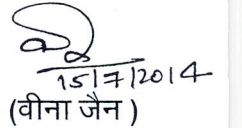 15/7/2014
(वीना जैन)